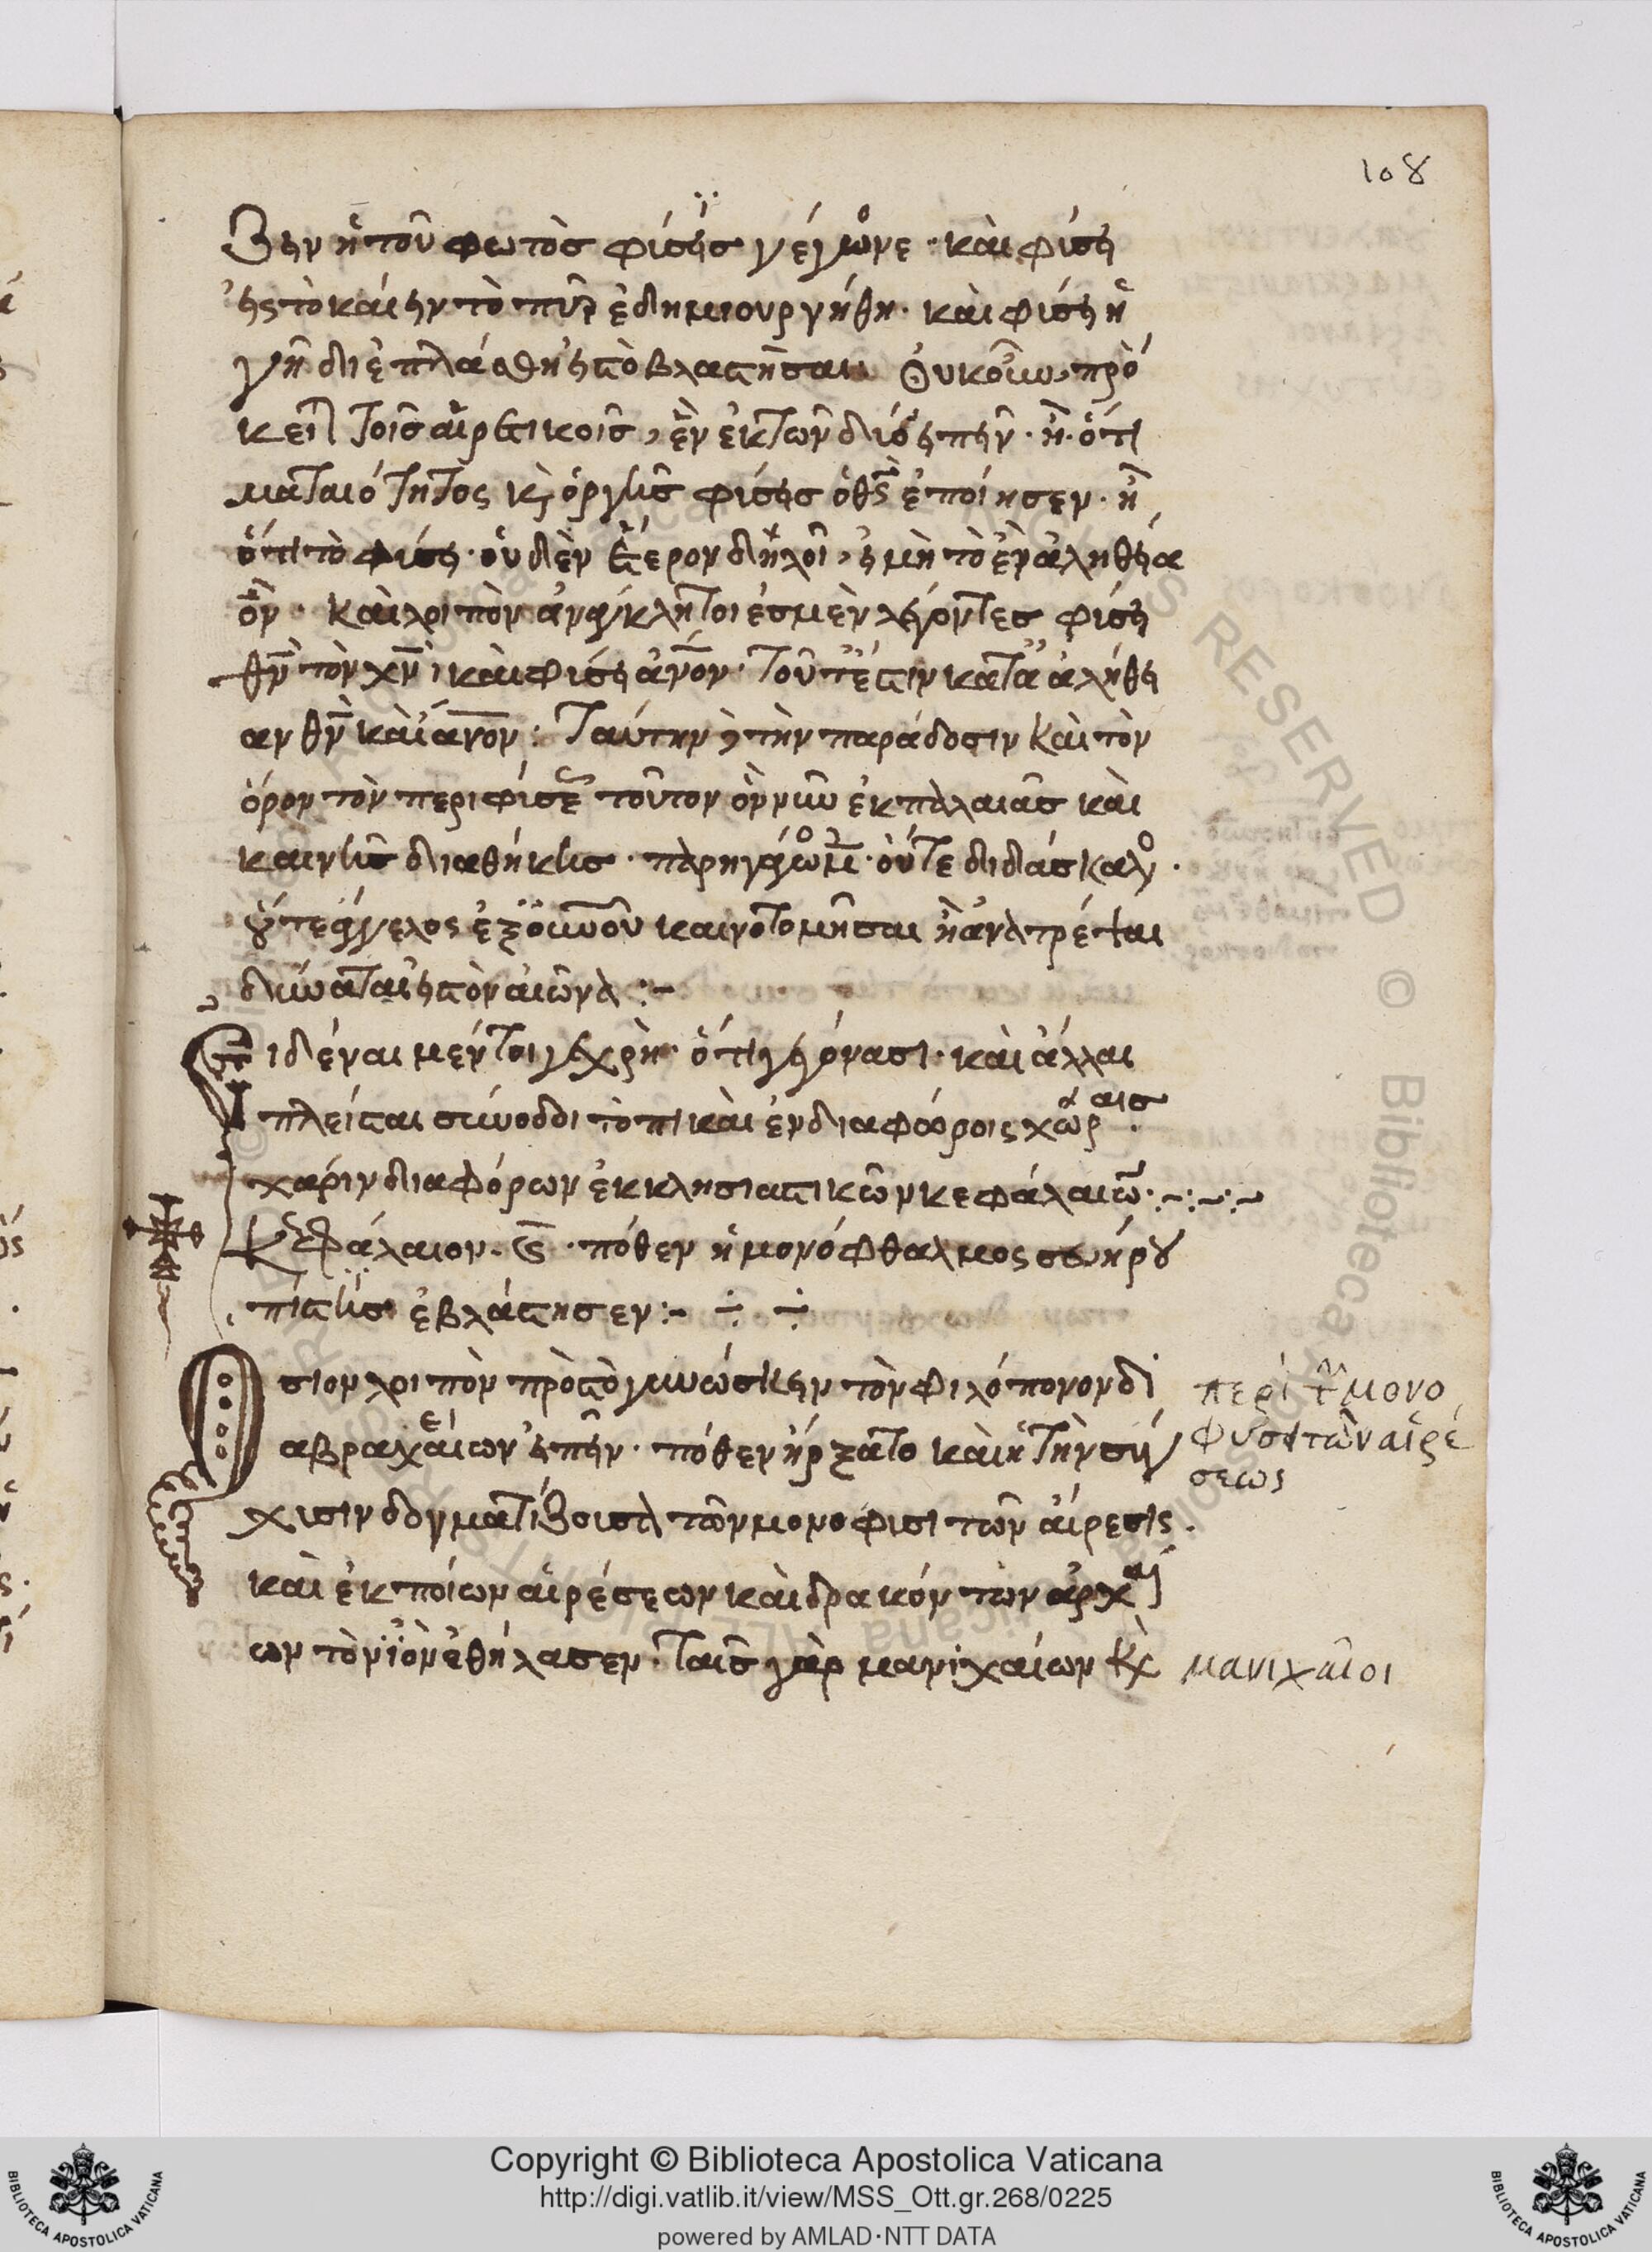 108
ζειν ἡ τοῦ φωτὸς φίσεις γέγωνε · καὶ φίσει
εἰς τὸ καίειν τὸ πῦρ ἐδημιουργήθη · καὶ φίσει ἡ
γῆ διεπλάσθη εἰς τὸ βλαστῆσαι Οὐκοῦν πρό
κειται τοῖς αἱρετικοῖς, ἓν ἐκ τῶν δύο εἰπεῖν · ἢ · ὅτι
ματαιότητος κ(αὶ) ὀργῆς φίσεις ὁ θς ἐποίησεν · ἢ
ὅτι τὸ φίσει · οὐδὲν ἕτερον δηλοῖ, εἰ μὴ τὸ ἐν ἀληθεία
ὄν · καὶ λοιπὸν ἀνέγκλητοι ἐσμὲν λέγοντες φίσει
θν τὸν χν, καὶ φίσει ἀνον · τοῦτ' ἔστιν κατὰ ἀλήθει
αν θν καὶ ἀνον : Ταύτην τὴν παράδοσιν καὶ τὸν
ὅρον τὸν περὶ φίσεως τοῦτον ὃν νῦν ἐκ παλαιᾶς καὶ
καινῆς διαθήκης · παρηγάγωμεν · οὔτε διδάσκαλος ·
οὔτε ἄγγελος ἐξ οὐνοῦ καινοτομῆσαι ἢ ἀνατρέψαι
δύναται εἰς τὸν αἰῶνα :-
Ειδέναι μέντοιγε χρὴ · ὅτι γεγόνασι · καὶ ἄλλαι
πλείσται σύνοδοι τοπικαὶ ἐν διαφόροις χώραις ·
χάριν διαφόρων ἐκκλησιαστικῶν κεφαλαίων ·-:-:-
Κεφάλαιον · ϛ · πόθεν ἡ μονόφθαλμος σευήρου
πίστης ἐβλάστησεν :- ÷ ÷
Οσιον λοιπὸν πρὸς τὸ γινώσκειν τὸν φιλόπονον δι
αβραχέων εἰπεῖν · πόθεν ἤρξατο καὶ ἡ τὴν σύγ
χισιν δογματίζουσα τῶν μονοφισιτῶν αἵρεσις ·
καὶ ἐκ ποίων αἱρέσεων καὶ δρακόντων ἀρχαί
ων τὸν ἰὸν ἐθήλασεν · Ταῖς γὰρ μανιχαίων κ(αὶ)
περὶ τ(ῶν) μονο
φυσιτῶν αἱρέ
σεως
μανιχαῖοι
Copyright © Biblioteca Apostolica Vaticana
http://digi.vatlib.it/view/MSS_Ott.gr.268/0225
powered by AMLAD·NTT DATA
BIBLIOTECA APOSTOLICA VATICANA
BIBLIOTECA APOSTOLICA VATICANA